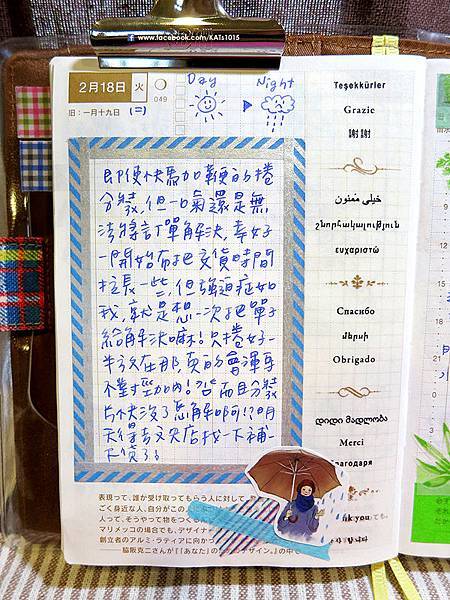 www.facebook.com/KATs1015
2月18日 火
049
旧：一月十九日 (二)
Day
Night
即便快馬加鞭的捲
分裝,但一口氣還是無
法將訂單解決,幸好
一開始有把交貨時間
拉長一些,但強迫症如
我,就是想一次把單子
給解決嘛!只捲好一
半放在那,真的會渾身
不對勁加內!
天得去文具店找一下補一
下貨了!
Teşekkürler
Grazie
謝謝
خيلى ممنون
շնորհակալություն
ευχαριστώ
Спасибо
մերսի
Obrigado
დიდი მადლობა
Merci
благодаря
nk you
表現って、誰か受け取ってもらう人に対して
ごく身近な人、自分がこの人に
人って、そうやって物をつく
マリメッコの場合でも、デザイナー
創立者のアルミ・ラティアに向かっ
——脇阪克二さんが『「あなた」の デザイン。』の中で